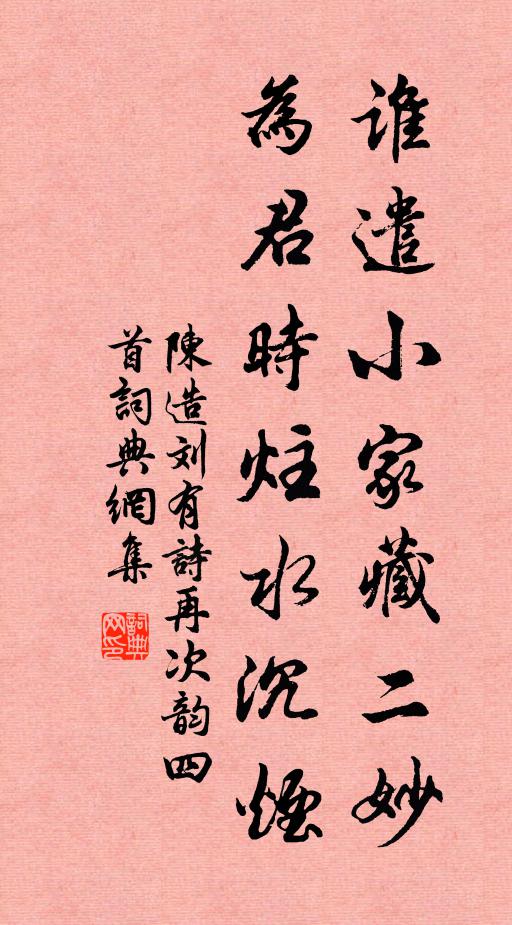 誰遣小家藏二妙
為君時炷水沉煙
陳造刘有詩再次韵四
首詞典網集
詞典
网印